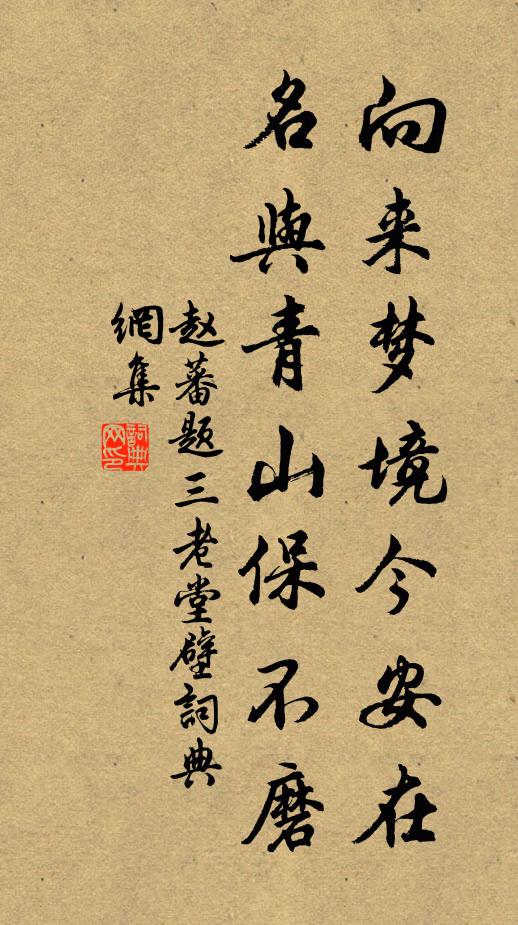 向来梦境今安在
名與青山保不磨
赵蕃题三老堂壁詞典
網集
詞典
网印